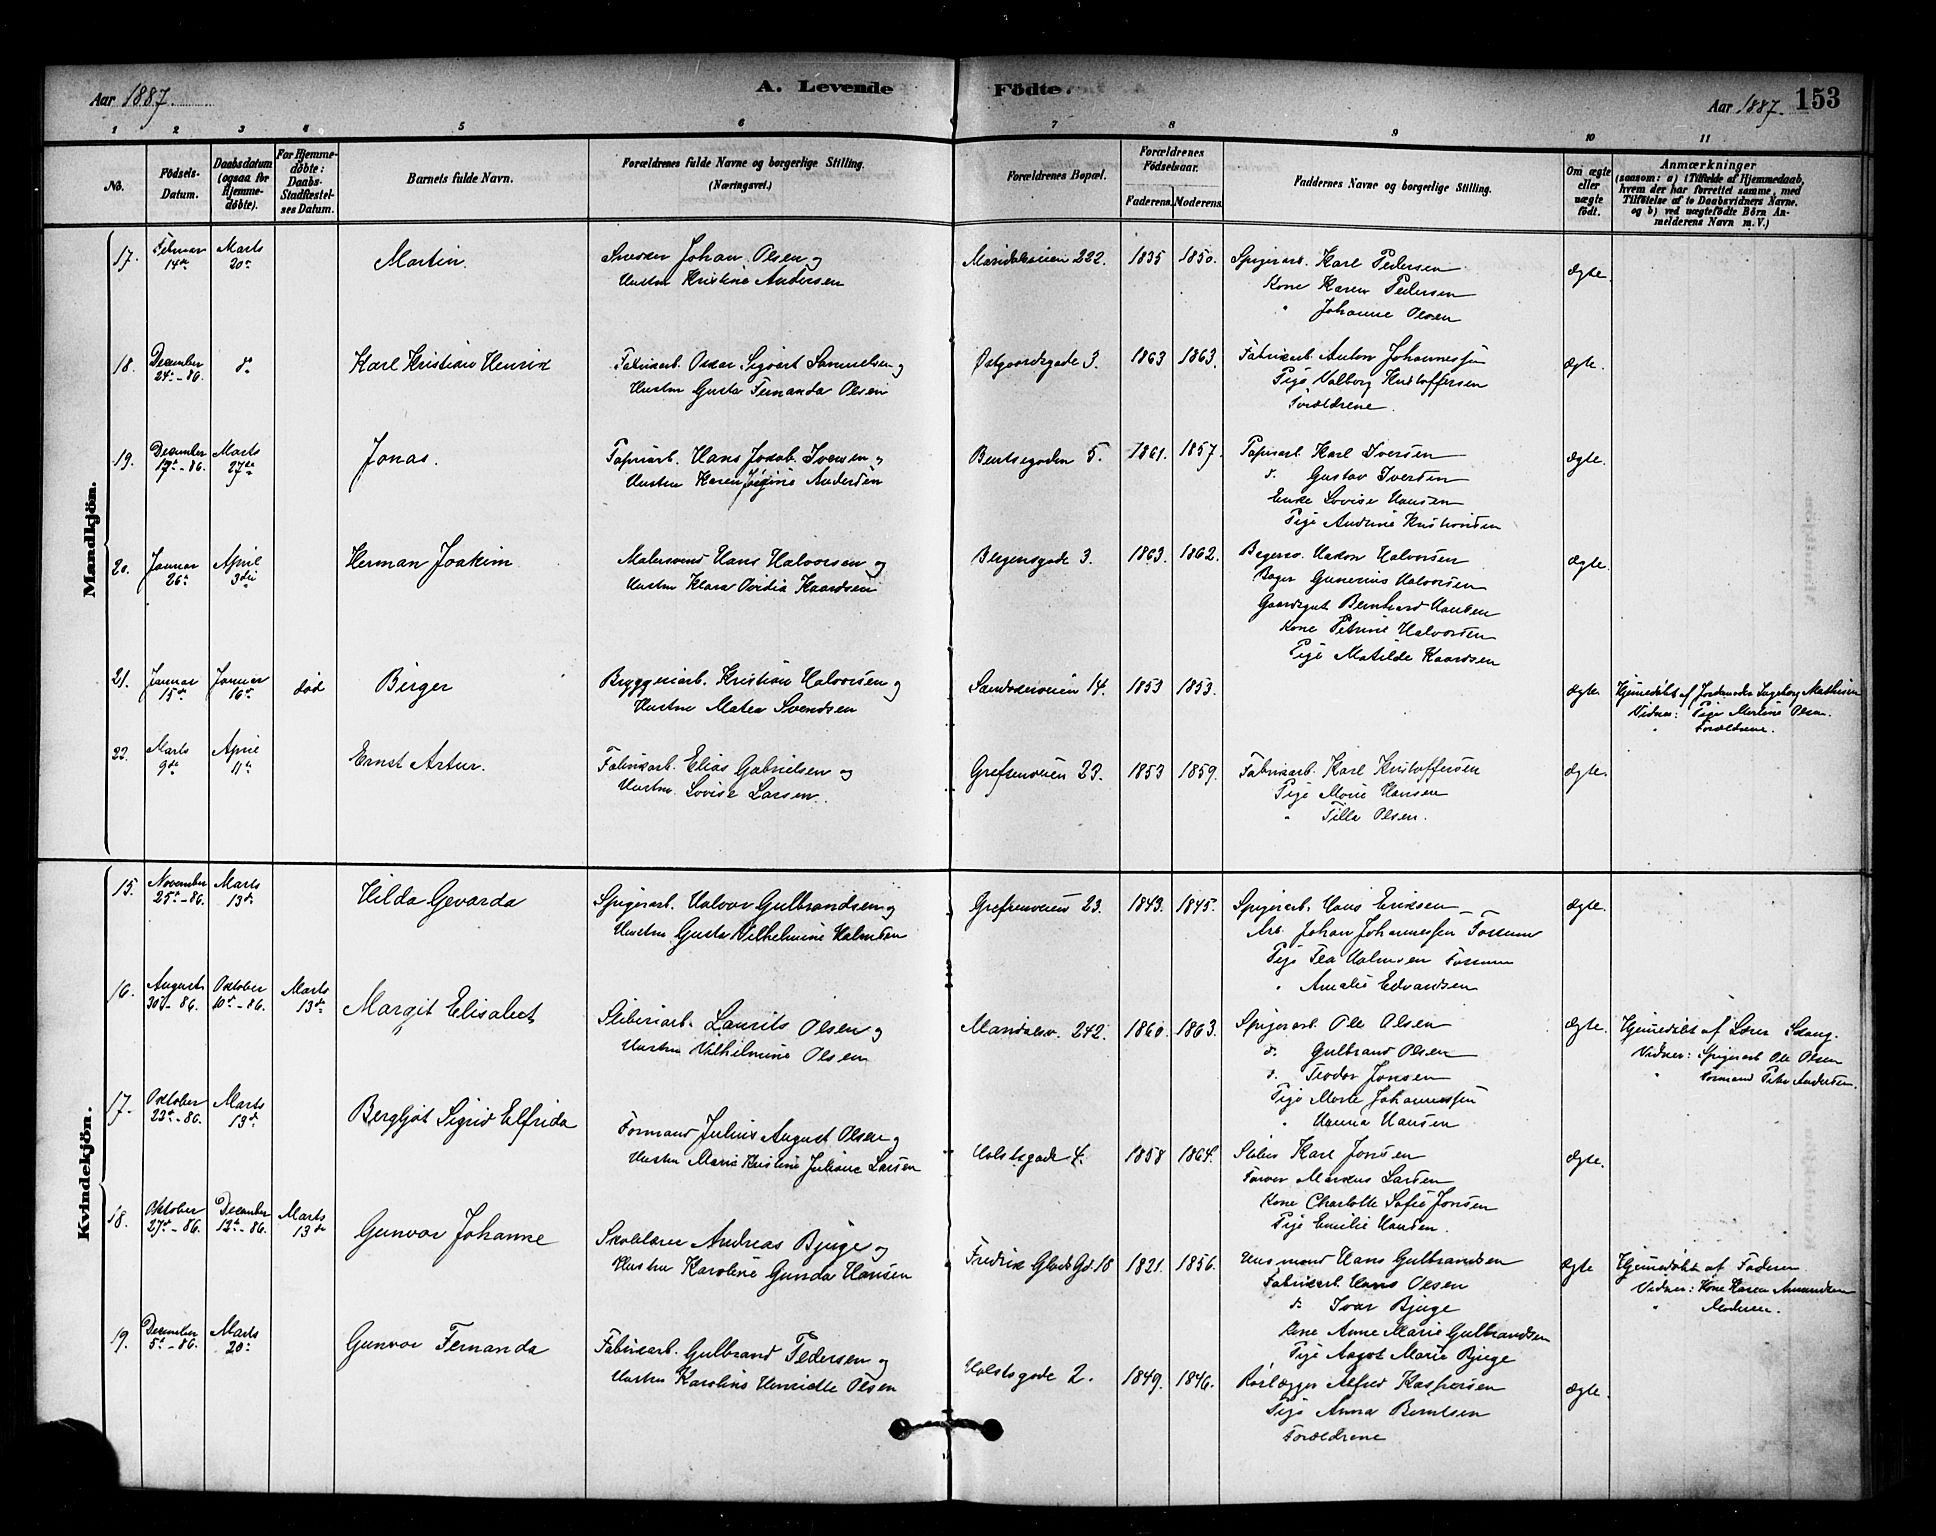 Aar 1887. A. Levende Födte. Aar 1887. 153
1 2 3 4 5 6 7 8 9 10 11
No. Födsels-Datum. Daabsdatum (ogsaa for Hjemmedöbte). For Hjemmedöbte: Daabs-Stadfæstelses Datum. Barnets fulde Navn. Forældrenes fulde Navne og borgerlige Stilling. (Næringsvei.) Forældrenes Bopæl. Forældrenes Födselsaar. Faderens. Moderens. Faddernes Navne og borgerlige Stilling. Om ægte eller uægte födt. Anmærkninger (saasom: a) i Tilfælde af Hjemmedaab, hvem der har forrettet samme, med Tilföielse af to Daabsvidners Navne, og b) ved uægtefödte Börn Anmelderens Navn m. V.)
Mandkjön.
17. Februar 14de Marts 20de Martin. Snedker Johan Olsen og Maridalsveien 222. 1835 1850. Spigerarb. Karl Pedersen ægte.
Hustru Kristine Andersen Kone Karen Pedersen
" Johanne Olsen
18. December 24de-86. do Karl Kristian Henrik Fabrikarb. Oskar Sigvart Samuelsen og Østgaardsgade 3. 1863 1863. Fabrikarb. Anton Johannessen ægte.
Hustru Gusta Fernanda Olsen Pige Valborg Kristoffersen
Forældrene.
19. December 17de-86. Marts 27de Jonas. Papirarb. Hans Jakob Iversen og Bentsegaden 5. 1861. 1857. Papirarb Karl Iversen ægte.
Hustru Karen Jørgine Andersen do. Gustav Iversen
Enke Lovise Hansen
Pige Andrine Kristiansen
20. Januar 26de April 3die Herman Joakim Malersvend Hans Halvorsen og Bergensgade 3. 1863. 1862. Bagersv. Hakon Halvorsen ægte.
Hustru Klara Ovidia Kaardsen Bager Gunerius Halvorsen
Gaardsgut Bernhard Hansen
Kone Petrine Halvorsen
Pige Matilde Kaardsen
21. Januar 15de Januar 16de død Birger Bryggeriarb. Kristian Halvorsen og Sandakerveien 14. 1853 1853. ægte. Hjemmedöbt af Jordemoder Ingeborg Mathisen
Hustru Matea Svendsen Vidner: Pige Martine Olsen.
" Forældrene.
22. Marts 9de April 11te Ernst Artur. Fabrikarb. Elias Gabrielsen og Grefsenveien 23. 1853 1859. Fabrikarb. Karl Kristoffersen ægte.
Hustru Lovise Larsen. Pige Marie Hansen
" Tilla Olsen.
Kvindekjön.
15. November 25de-86. Marts 13de Hilda Gevarda Spigerarb. Halvor Gulbrandsen og Grefsenveien 23. 1843. 1845. Spigerarb. Hans Eriksen ægte.
Hustru Gusta Vilhelmine Halmsen Arb. Johan Johannessen Fossum
Pige Tea Halmsen Fossum
" Amalie Edvardsen
16. August 30de-86. Oktober 10de-86. Marts 13de Margit Elisabet Sliberiarb. Laurits Olsen og Maridalsv. 242. 1860. 1863. Spigerarb. Ole Olsen ægte. Hjemmedöbt af Lærer Skaug.
Hustru Vilhelmine Olsen do. Gulbrand Olsen Vidner: Spigerarb Ole Olsen
do. Teodor Jonsen " Formand Peter Andersen.
Pige Marte Johannessen
" Hanna Hansen
17. Oktober 22de-86. Marts 13de Bergljot Sigrid Elfrida Formand Julius August Olsen og Holstsgade 4. 1858 1864. Sliber Karl Jonsen ægte.
Hustru Marie Kristine Juliane Larsen Farver Markus Larsen
Kone Charlotte Sofie Jonsen
Pige Emilie Hansen.
18. Oktober 27de-86. December 12te-86. Marts 13de Gunvor Johanne Skolelærer Andreas Bjuge og Fredrik Glads Gd. 18 1821. 1856. Husmand Hans Gulbrandsen ægte Hjemmedöbt af Faderen
Hustru Karoline Gunda Hansen Fabrikarb. Hans Olsen Vidner: Kone Karen Amundsen
do. Ivar Bjuge " Moderen.
Kone Anne Marie Gulbrandsen
Pige Aagot Marie Bjuge
19. December 5te-86. Marts 20de Gunvor Fernanda Fabrikarb. Gulbrand Pedersen og Holstsgade 2. 1849. 1846. Rørlægger Alfred Kaspersen ægte.
Hustru Karoline Henriette Olsen Pige Anna Berntsen
Forældrene